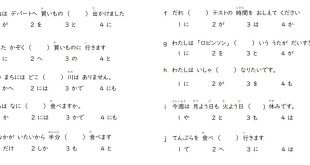 は デパートへ 買いもの (　　) 出かけました
が　　2 を　　3 と　　4 に
た かぞく (　　) 買いものに 行きます
に　　2 へ　　3 の　　4 と
まちには どこ (　　) 川は ありません。
か　　2 には　　3 かで　　4 にも
は なに (　　) 食べますか。
か　　2 には　　3 かで　　4 にも
なかが いたいから 半分 (　　) 食べます
だけ　　2 しか　　3 も　　4 と
f だれ (　　) テストの 時間を おしえて ください
1 に　　2 が　　3 も　　4 か
g わたしは 「ロビンソン」 (　　) いう うたが だいす
1 に　　2 を　　3 と　　4 が
h わたしは いしゃ (　　) なりたいです。
1 に　　2 が　　3 を　　4 も
i 今週は 月よう日も 火よう日 (　　) 休みです。
1 や　　2 と　　3 も　　4 は
j てんぷらを 食べ (　　) 行きます
1 て　　2 へ　　3 に　　4 は